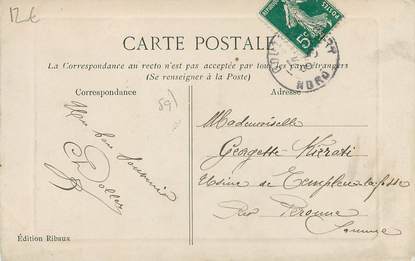 12€
CARTE POSTALE
La Correspondance au recto n'est pas acceptée par tous les pays étrangers
(Se renseigner à la Poste)
Correspondance
Adresse
591
Un bon Souvenir
Mademoiselle
Georgette
Usine de Templeux-la-fosse
Par Péronne
Somme
Édition Ribaux
5c
POSTES
NORD